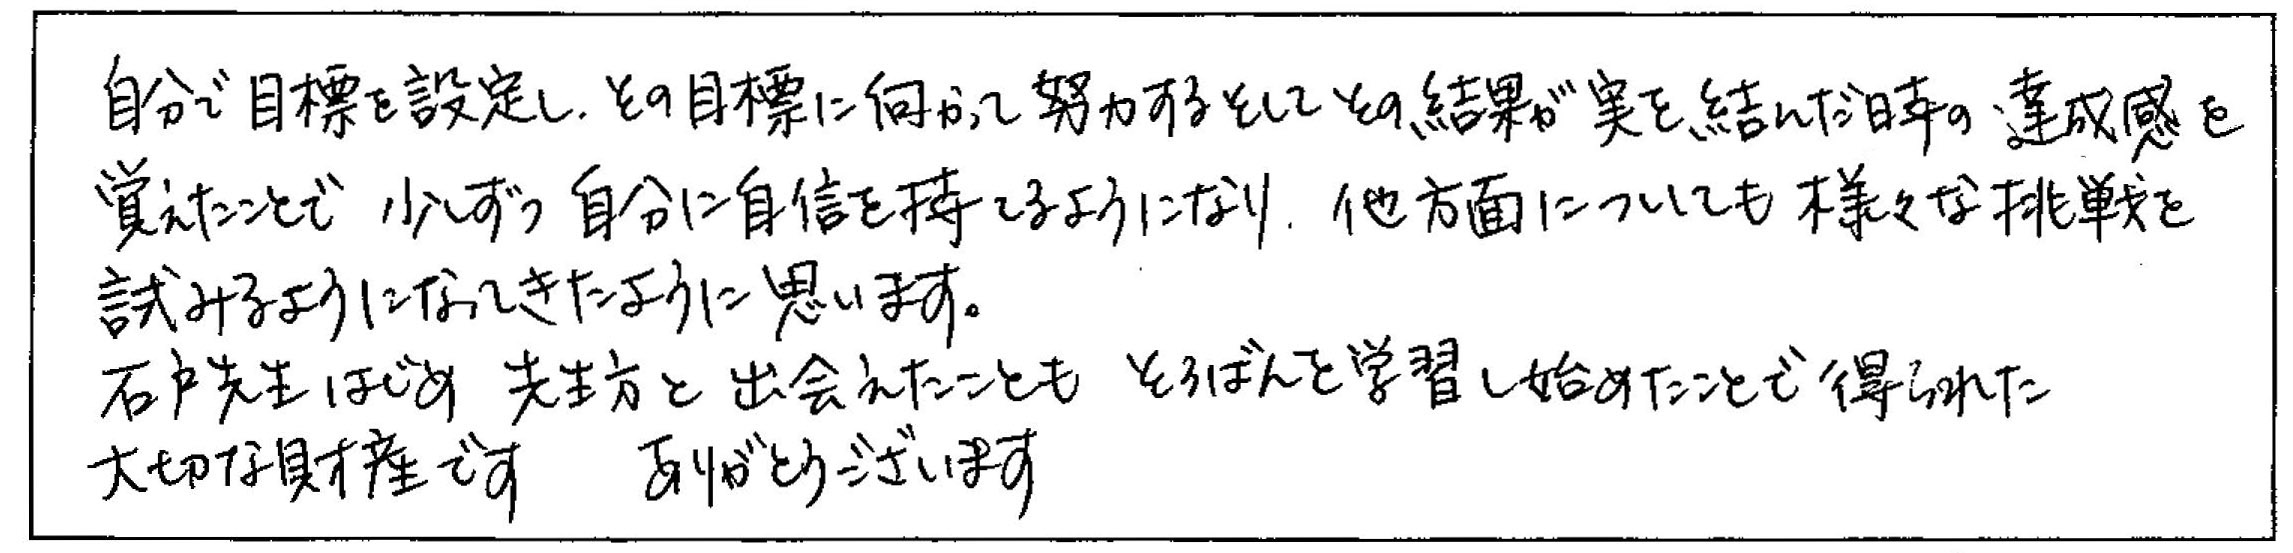 自分で目標を設定し、その目標に向かって努力するそしてその結果が実を結んだ時の達成感を
覚えたことで少しずつ自分に自信を持てるようになり、他方面についても様々な挑戦を
試みるようになってきたように思います。
石戸先生はじめ先生方と出会えたこともそろばんを学習し始めたことで得られた
大切な財産です ありがとうございます